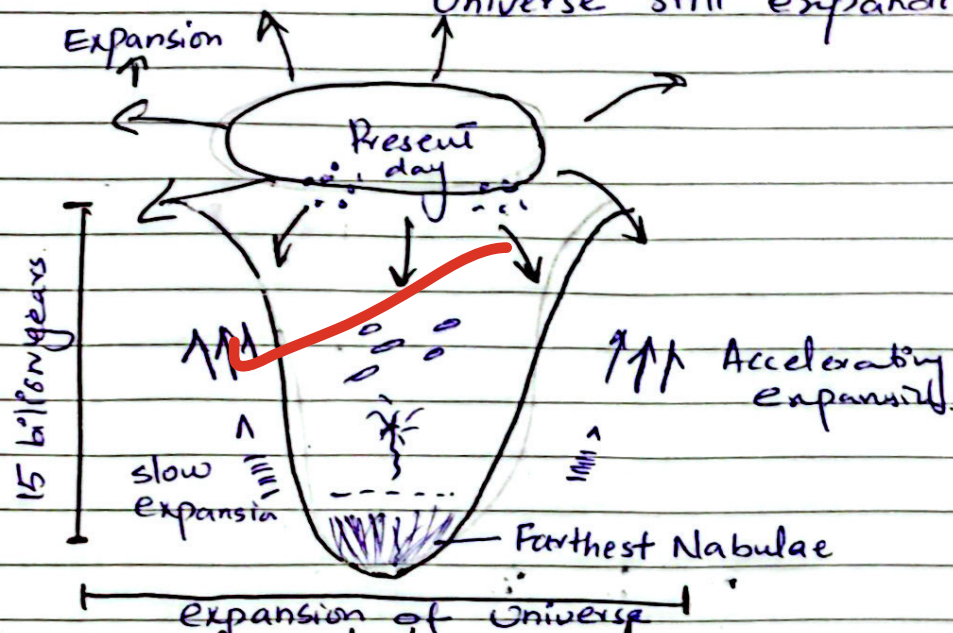 Universe still expandi
Expansion
Present
day
15 billion years
Accelerating
expansion
slow
expansion
Farthest Nabulae
expansion of Universe